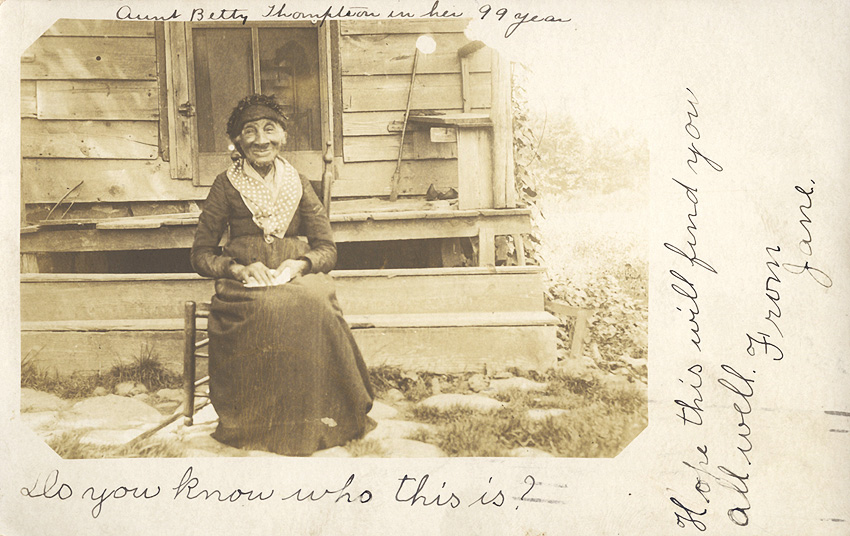 Aunt Betty Thompson in her 99 year
Do you know who this is?
Hope this will find you
all well. From
Jane.